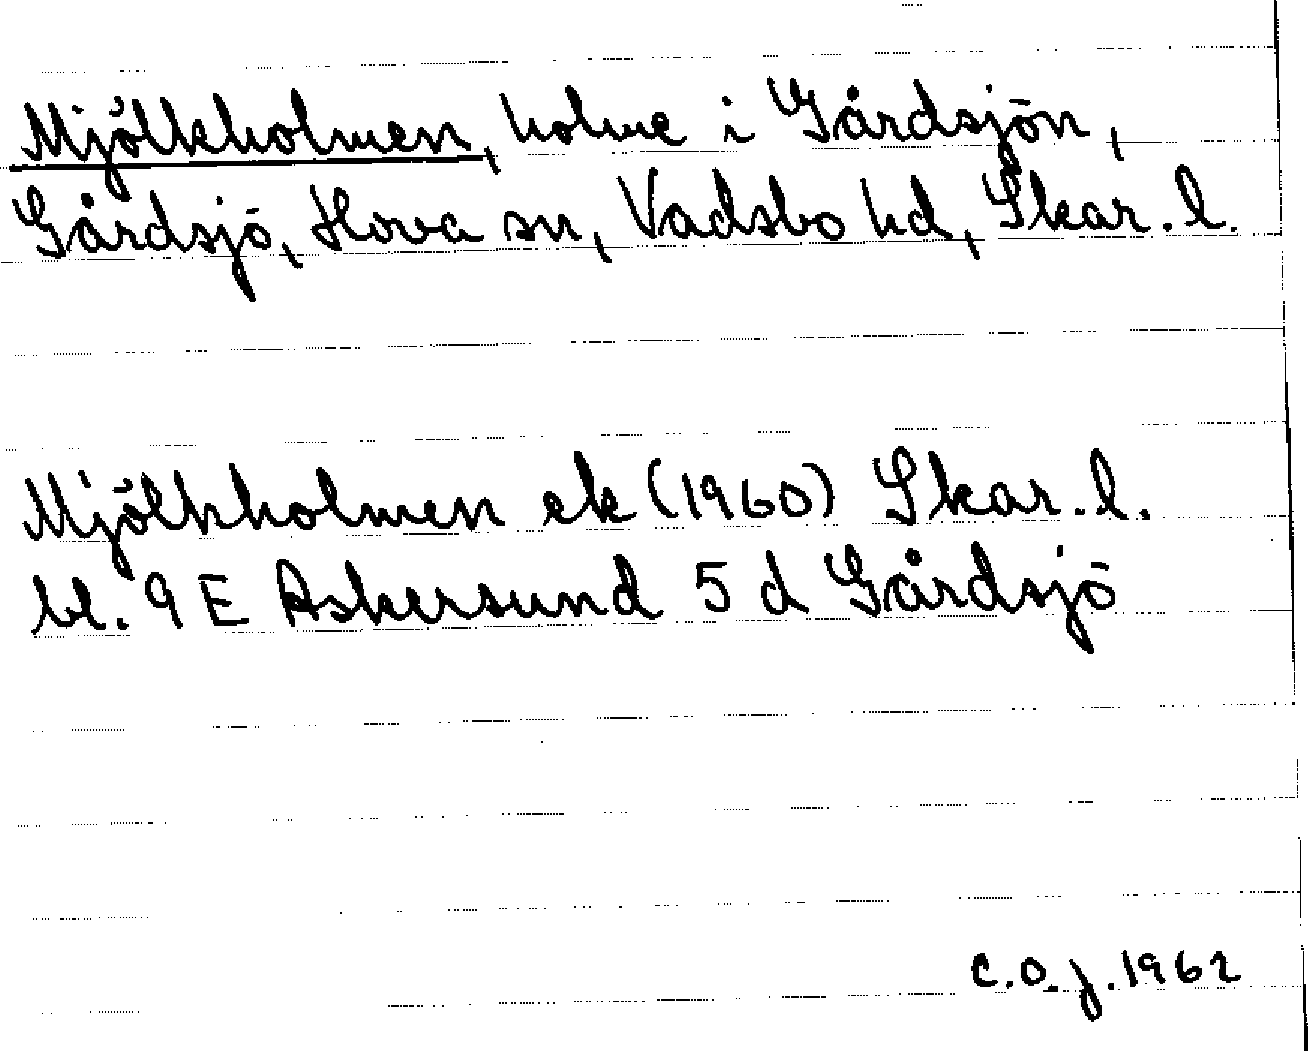 Mjölkholmen, holme i Gårdsjön,
Gårdsjö, Hova sn, Vadsbo hd, Skar. l.
Mjölkholmen ek (1960) Skar. l.
bl. 9 E Askersund 5 d Gårdsjö
C.O.J. 1962